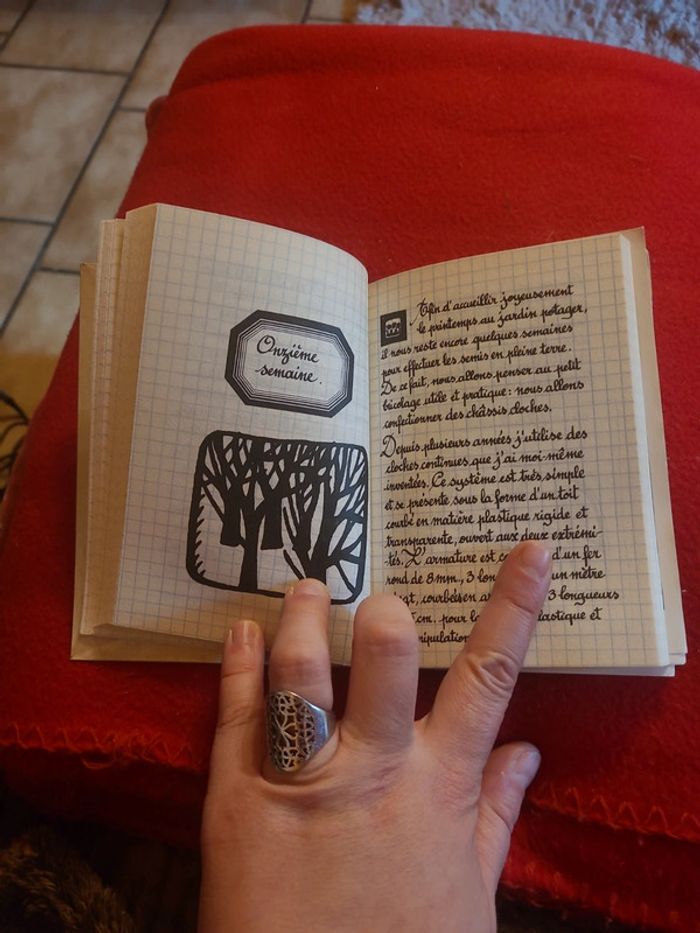 Onzième
semaine.
Afin d'accueillir joyeusement
le printemps au jardin potager,
il nous reste encore quelques semaines
pour effectuer les semis en pleine terre.
De ce fait, nous allons penser au petit
bricolage utile et pratique: nous allons
confectionner des châssis cloches.
Depuis plusieurs années j'utilise des
cloches continues que j'ai moi-même
inventées. Ce système est très simple
et se présente sous la forme d'un toit
courbé en matière plastique rigide et
transparente, ouvert aux deux extrémi-
-tés. L'armature est d'un fer
rond de 8mm., 3 un mètre
courbées en 3 longueurs
cm. pour